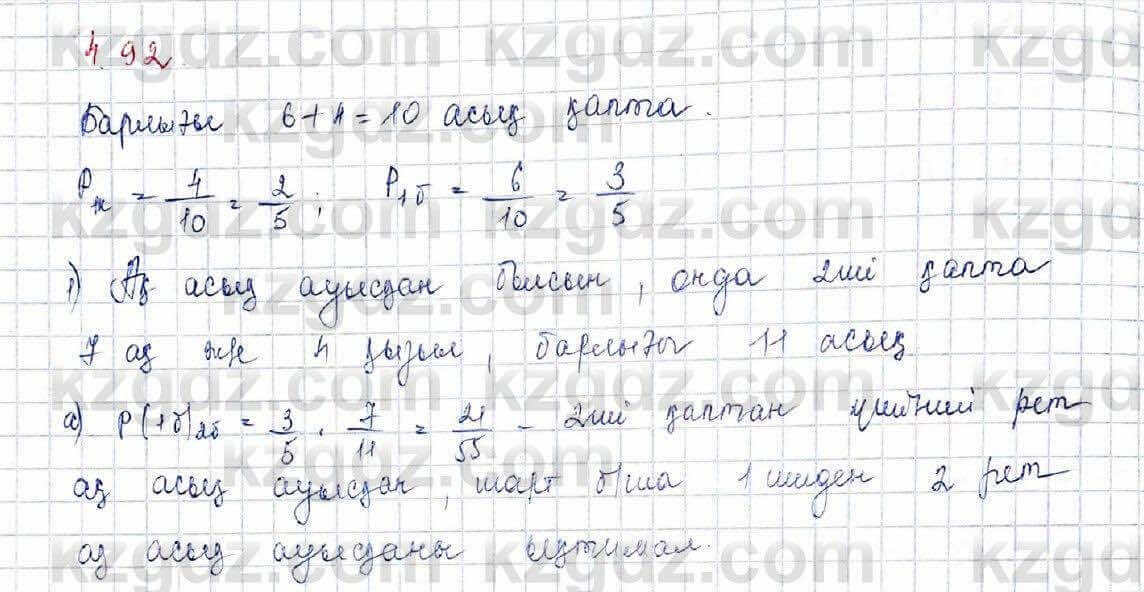 4.92.
Барлығы 6+4=10 асық қапта.
Pқ = 4/10 = 2/5 ; P1б = 6/10 = 3/5
1) Ақ асық ауысқан болсын, онда 2ші қапта
7 ақ және 4 қызыл, барлығы 11 асық
а) P(1б)2б = 3/5 · 7/11 = 21/55 - 2ші қаптан рет
ақ асық ауысқан, шарт б/ша 1 шіден 2 рет
ақ асық ауысқаны ықтимал.
kzgdz.com